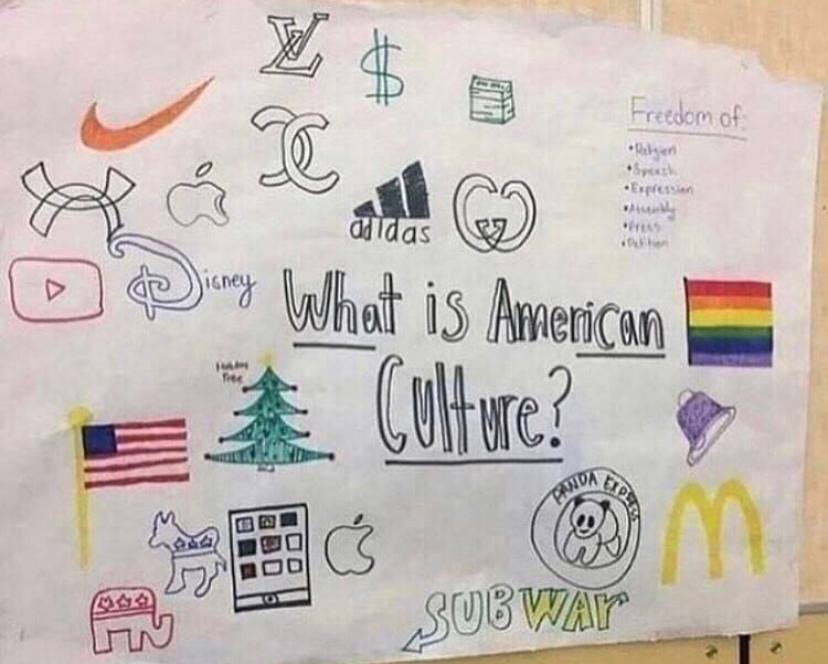 LV
$
Freedom of:
• Religion
• Speech
• Expression
• Assembly
• Press
• Petition
adidas
Disney
What is American
Culture?
Holiday
Tree
PANDA EXPRESS
SUBWAY